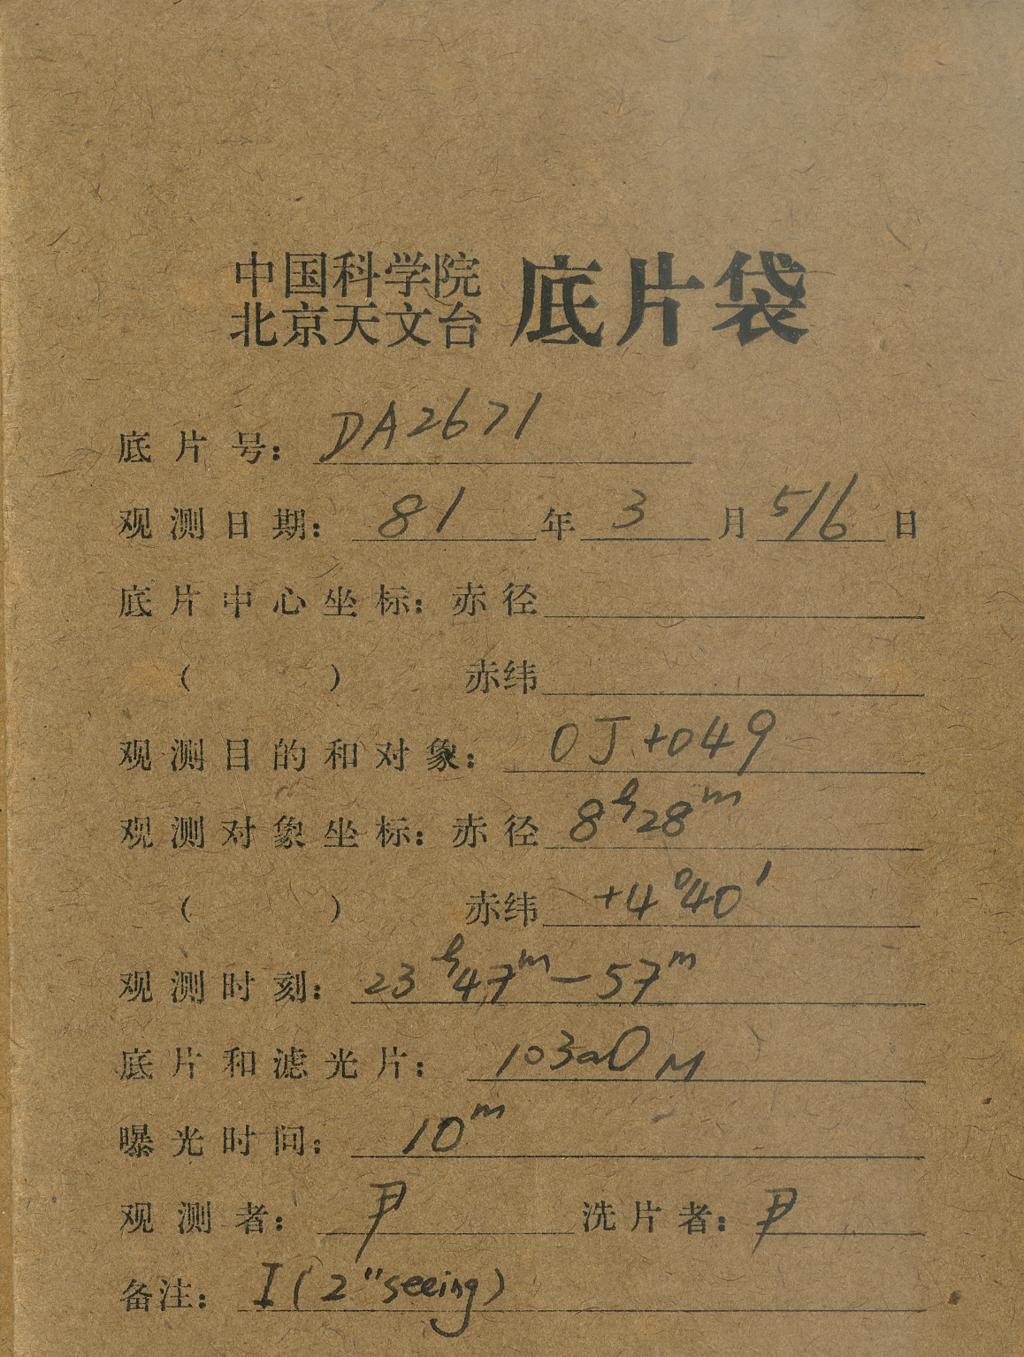 中国科学院
北京天文台 底片袋
底片号: DA2671
观测日期: 81 年 3 月 5/6 日
底片中心坐标: 赤径
( ) 赤纬
观测目的和对象: OJ+049
观测对象坐标: 赤径 8h28m
( ) 赤纬 +4°40′
观测时刻: 23h47m—57m
底片和滤光片: 103aO M
曝光时间: 10m
观测者: 尹 洗片者: 尹
备注: I (2"seeing)